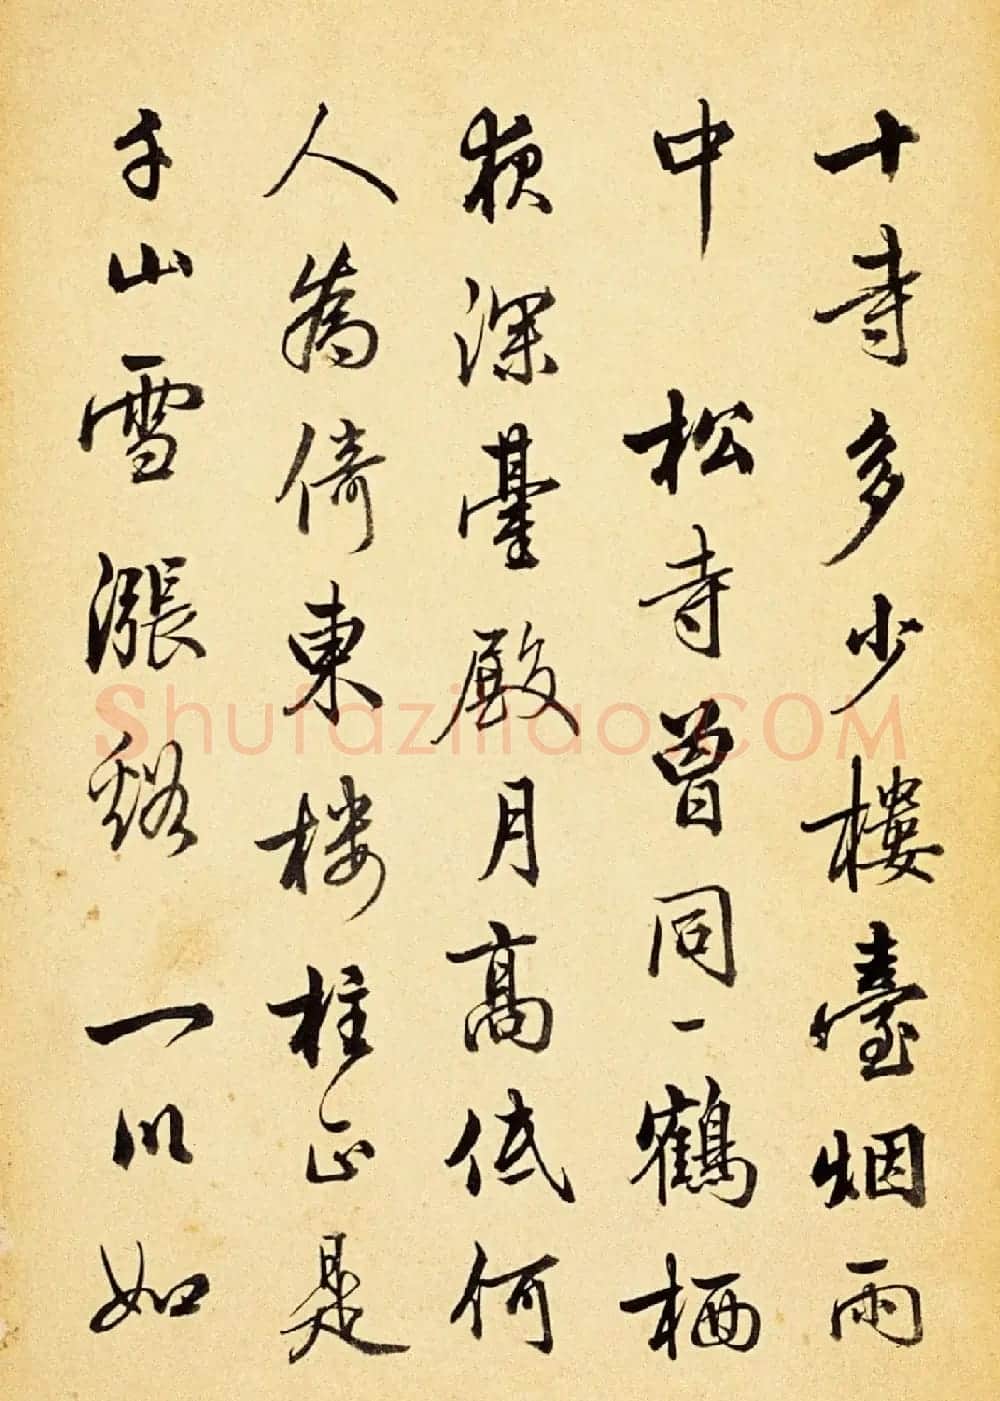 十寺多少樓臺烟雨
中 松寺曾同一鶴栖
夜深臺殿月高低何
人為倚東楼柱正是
千山雪漲谿 一川如
Shufaziliao.COM